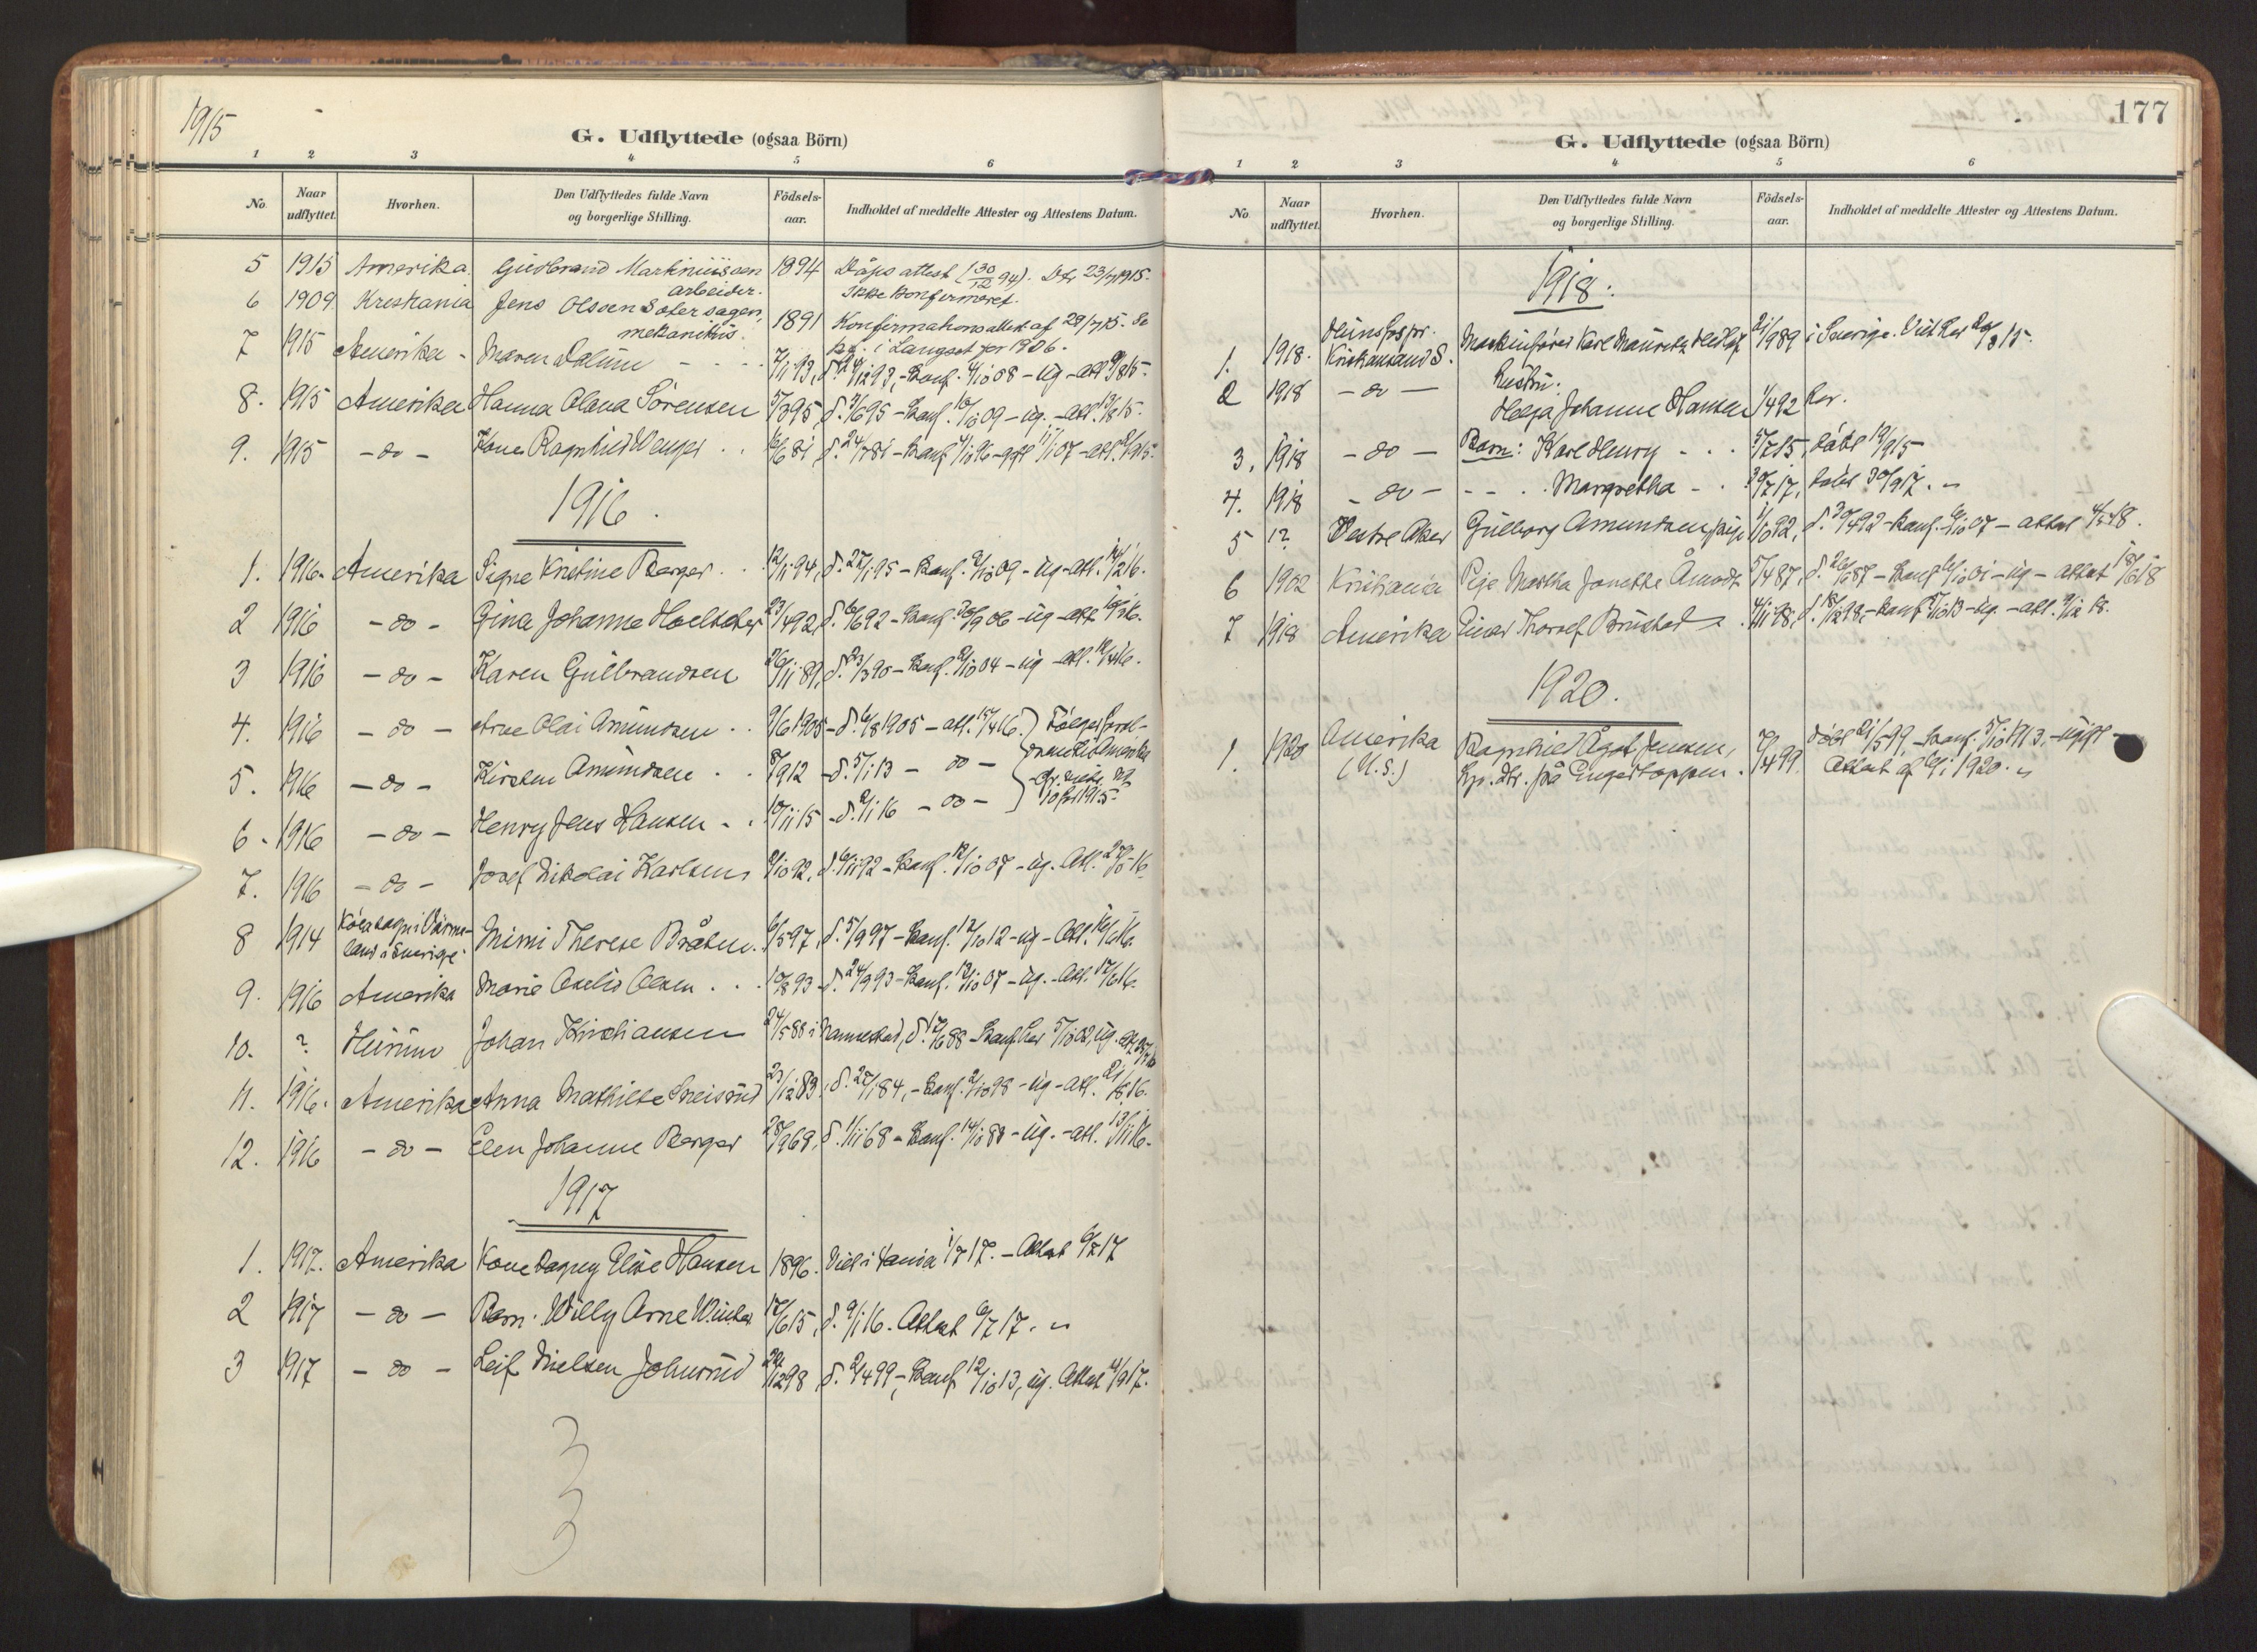 1915
G. Udflyttede (ogsaa Börn)
1 2 3 4 5 6
No. Naar udflyttet. Hvorhen. Den Udflyttedes fulde Navn og borgerlige Stilling. Födsels-aar. Indholdet af meddelte Attester og Attestens Datum.
5 1915 Amerika. Gudbrand Martiniussen 1894 Dåps attest (30/12 94). Dtr 23/7 1915.
arbeider. Ikke konfirmeret.
6 1909 Kristiania Jens Olssen Sætersagen, 1891 Konfirmationsattest af 29/7 15. Se
mekanikus. i Langset for 1906.
7 1915 Amerika - Maren Dalum - - 7/11 93, d. 24/12 93, - Konf. 4/10 08 - ug - att. 9/8 15.
8. 1915 Amerika Hanna Olava Sörensen 5/3 95 d. 3/6 95 - Konf. 10/10 09 - ug. - att. 19/8 15.
9. 1915 - do - Kone Ragnhild Wenger . . 16/6 81 d. 24/7 81 - Konf. 4/10 96 - gift 11/1 07 - att. 2/9 15.
1916.
1. 1916. Amerika Signe Kristine Berger . . 12/11 94, d. 27/1 95 - Konf. 9/10 09 - ug - att. 14/2 16.
2 1916 - do - Gina Johanne Hoelscher 23/4 92, d. 6/6 92 - Konf. 30/9 06 - ug - att. 10/3 16.
3 1916 - do - Karen Gulbrandsen 26/11 89, d. 23/3 90 - Konf. 2/10 04 - ug - att. 12/4 16.
4. 1916 - do - Arne Olai Amundsen . . 9/6 1905 - d. 6/8 1905 - att. 15/4 16. Fölger foræl-
5. 1916 - do - Kirsten Amundsen . . 8/9 12 - d. 5/1 13 - do - drene til Amerika
6. 1916 - do - Henry Jens Hansen - . 10/11 15 - d. 2/1 16 - do - 10 for 1915.
7. 1916 - do - Josef Nikolai Karlsen 2/10 92, d. 6/11 92 - Konf. 12/10 07 - ug. Att. 27/5 16.
8 1914 Köla sogn i Värm-
land i Sverige. Mimi Therese Bråten. 6/5 97, d. 5/9 97 - Konf. 12/10 12 - ug - Att. 16/6 16.
9. 1916 Amerika Marie Oselie Olsen . . 10/8 93 - d. 24/9 93 - Konf. 12/10 07 - ug. - Att. 17/6 16.
10. ? Hurum Johan Kristiansen 24/5 88 i Nannestad, d. 17/6 88 - Konf. her 5/10 02, ug.
11. 1916. Amerika Anna Mathilde Sneisrud 23/12 83, d. 27/1 84, - Konf. 2/10 98 - ug - att. 21/8 16.
12. 1916 - do - Elen Johanne Berger 28/9 68, d. 1/11 68 - Konf. 14/10 83 - ug. - att. 13/11 16.
1917
1. 1917. Amerika Kone Dagny Elise Hansen 1896. Viet i Vania 1/7 17. - Attest 6/7 17
2 1917 - do - Barn: Willy Arne Winter 17/6 15, d. 9/1 16. Attest 6/7 17. "
3 1917 - do - Leif Nielsen Johnsrud 20/12 98, d. 2/4 99, - Konf. 12/10 13, ug. Attest 4/9 17.
177
G. Udflyttede (ogsaa Börn)
1 2 3 4 5 6
No. Naar udflyttet. Hvorhen. Den Udflyttedes fulde Navn og borgerlige Stilling. Födsels-aar. Indholdet af meddelte Attester og Attestens Datum.
1918:
1. 1918. Hunsfos pr.
Kristiansand S. Maskinförer Karl Mauritz 21/9 89 i Sverige. Viet her 15.
2 1918 - do - Hustru:
Helga Johanne Hansen 1/4 92 her.
3. 1918 - do - Barn: Karl Henry - . . 5/7 15, döbt 19/9 15
4. 1918 - do - - - . . Margretha - . 30/7 17, döbt 30/9 17. "
5 1? Vestre Aker Gulborg Amundsen, pige 1/10 92, d. 30/4 92 - Konf. 6/10 07 - attest 4/5 18.
6 1902 Kristiania Pige Martha Janette Åmodt 5/4 87, d. 26/6 87 - Konf. 6/10 01 - ug - attest 18/6 18
7 1918 Amerika Einar Thoralf Brustad . 4/11 98, d. 18/12 98, - Konf. 5/10 13 - ug. - att. 9/12 18.
1920.
1. 1920 Amerika
(U.S.) Ragnhild Ågot Jensen, 7/4 99. döbt 21/5 99, - Konf. 5/10 1913, - ugift -
på Engertoppen. Attest af 6/1 1920. "